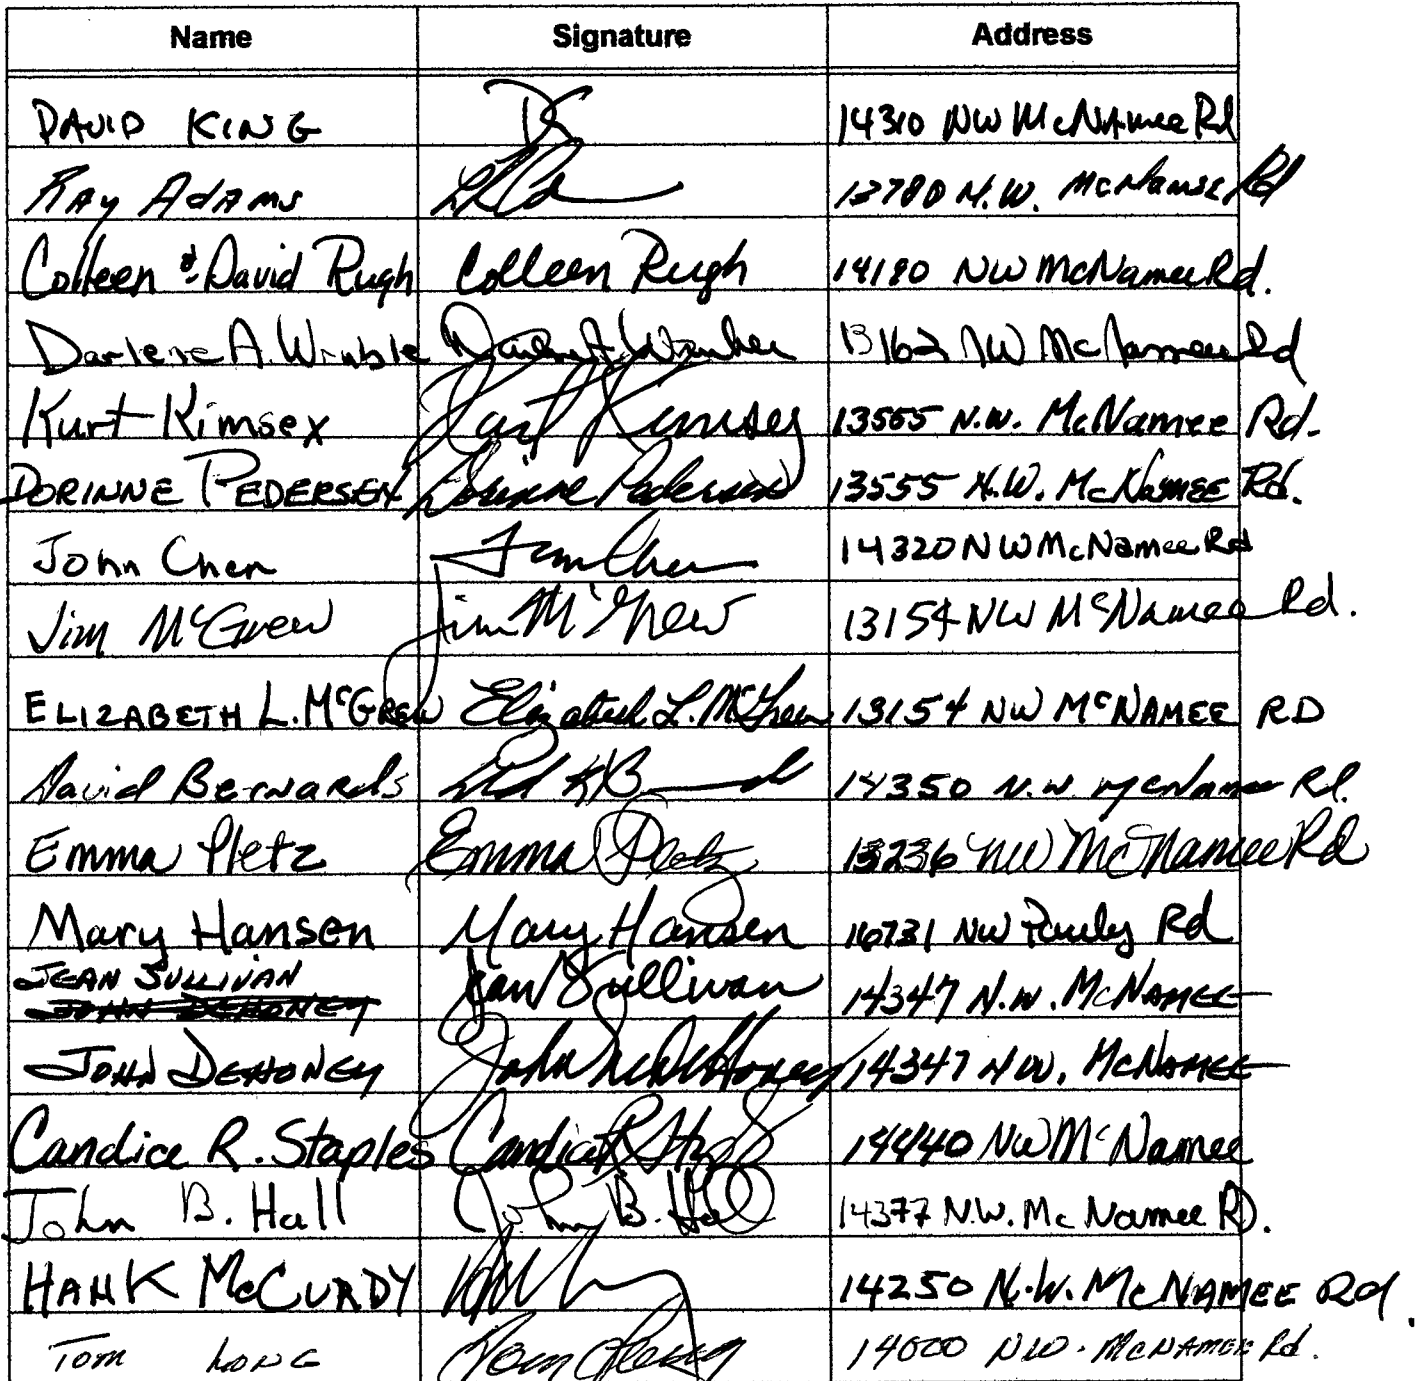 Name Signature Address
DAVID KING 14310 NW McNAmee Rd
RAy AdAms 13780 N.W. McNamee Rd
Colleen & David Rugh Colleen Rugh 14180 NW McNamee Rd.
Darlene A. Wruble 13162 NW McNamee Rd
Kurt Kimsey Kurt Kimsey 13565 N.W. McNamee Rd.
DORINNE PEDERSEN Dorinne Pedersen 13555 N.W. McNamee Rd.
John Chen John Chen 14320 NW McNamee Rd
Jim McGrew Jim McGrew 13154 NW McNamee Rd.
ELIZABETH L. McGREW Elizabeth L. McGrew 13154 NW McNAMEE RD
David Bernards 14350 N.W. McNamee Rd.
Emma Pletz Emma Pletz 13236 NW McNamee Rd
Mary Hansen Mary Hansen 16731 NW Pauly Rd
JEAN SULLIVAN Jean Sullivan 14347 N.W. McNAMEE
JOHN DEHONEY
JOHN DEHONEY John DeHoney 14347 N.W. McNAMEE
Candice R. Staples Candice R 14440 NW McNamee
John B. Hall John B. Hall 14377 N.W. McNamee RD.
HANK McCURDY 14250 N.W. McNAMEE Rd.
Tom LONG Tom Long 14000 NW. McNAMEE Rd.